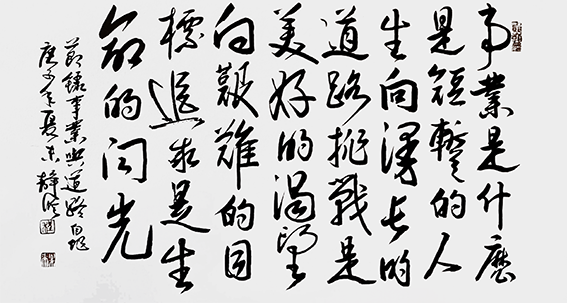 事業是什麼
是短暫的人
生向漫長的
道路挑戰是
美好的渴望
向艱難的目
標追求是生
命的闪光
節錄事業與道路
庚子年夏末靜